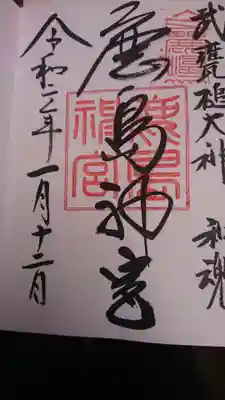 武甕槌大神 和魂
鹿島神宮
鹿島
神宮
令和二年一月十二日